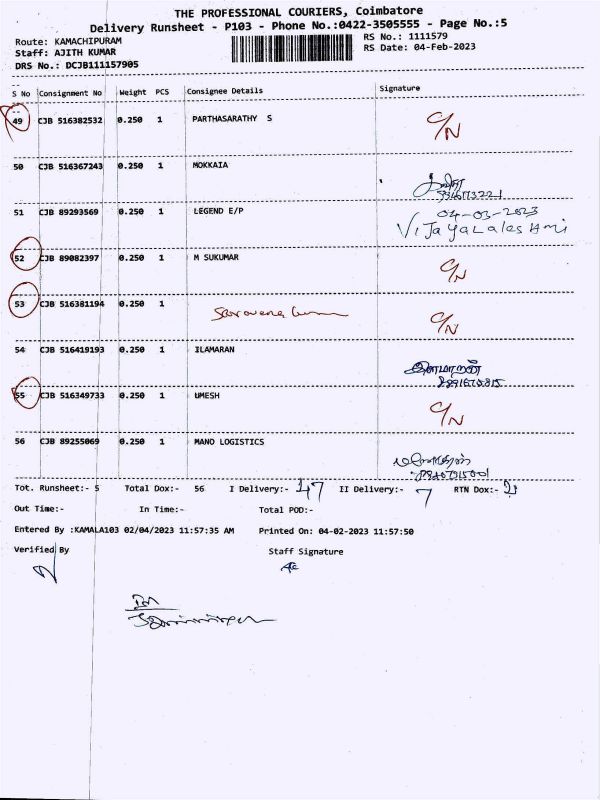 THE PROFESSIONAL COURIERS, Coimbatore
Delivery Runsheet - P103 - Phone No.:0422-3505555 - Page No.:5
Route: KAMACHIPURAM
RS No.: 1111579
Staff: AJITH KUMAR
RS Date: 04-Feb-2023
DRS No.: DCJB111157905
S No Consignment No Weight PCS Consignee Details Signature
49 CJB 516382532 0.250 1 PARTHASARATHY S C/N
50 CJB 516367243 0.250 1 MOKKAIA
51 CJB 89293569 0.250 1 LEGEND E/P 04-03-2023
52 CJB 89082397 0.250 1 M SUKUMAR C/N
53 CJB 516381194 0.250 1 C/N
54 CJB 516419193 0.250 1 ILAMARAN இளமாறன்
55 CJB 516349733 0.250 1 UMESH C/N
56 CJB 89255069 0.250 1 MANO LOGISTICS
Tot. Runsheet:- 5 Total Dox:- 56 I Delivery:- 47 II Delivery:- 7 RTN Dox:-
Out Time:- In Time:- Total POD:-
Entered By :KAMALA103 02/04/2023 11:57:35 AM Printed On: 04-02-2023 11:57:50
Verified By Staff Signature